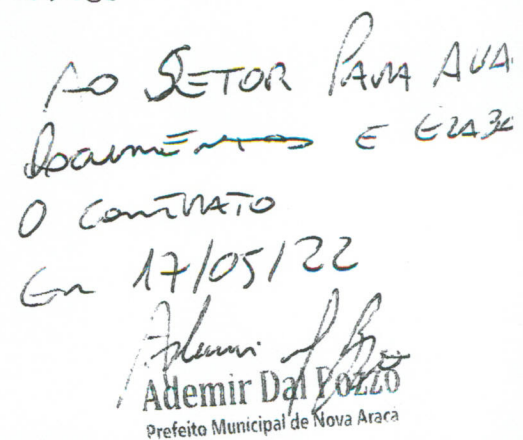 AO SETOR PARA AVA
DOCUMENTOS E ELABO
O CONTRATO
Em 17/05/22
Ademir Dal Pozzo
Prefeito Municipal de Nova Araçá